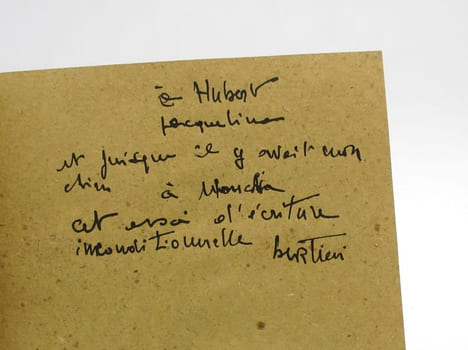 à Hubert
Jacqueline
et puisque il y avait mon
chien à
cet essai d'écriture
inconditionnelle